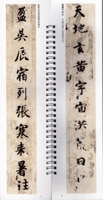 天地玄黃宇宙洪荒日月
盈昃辰宿列張寒来暑往